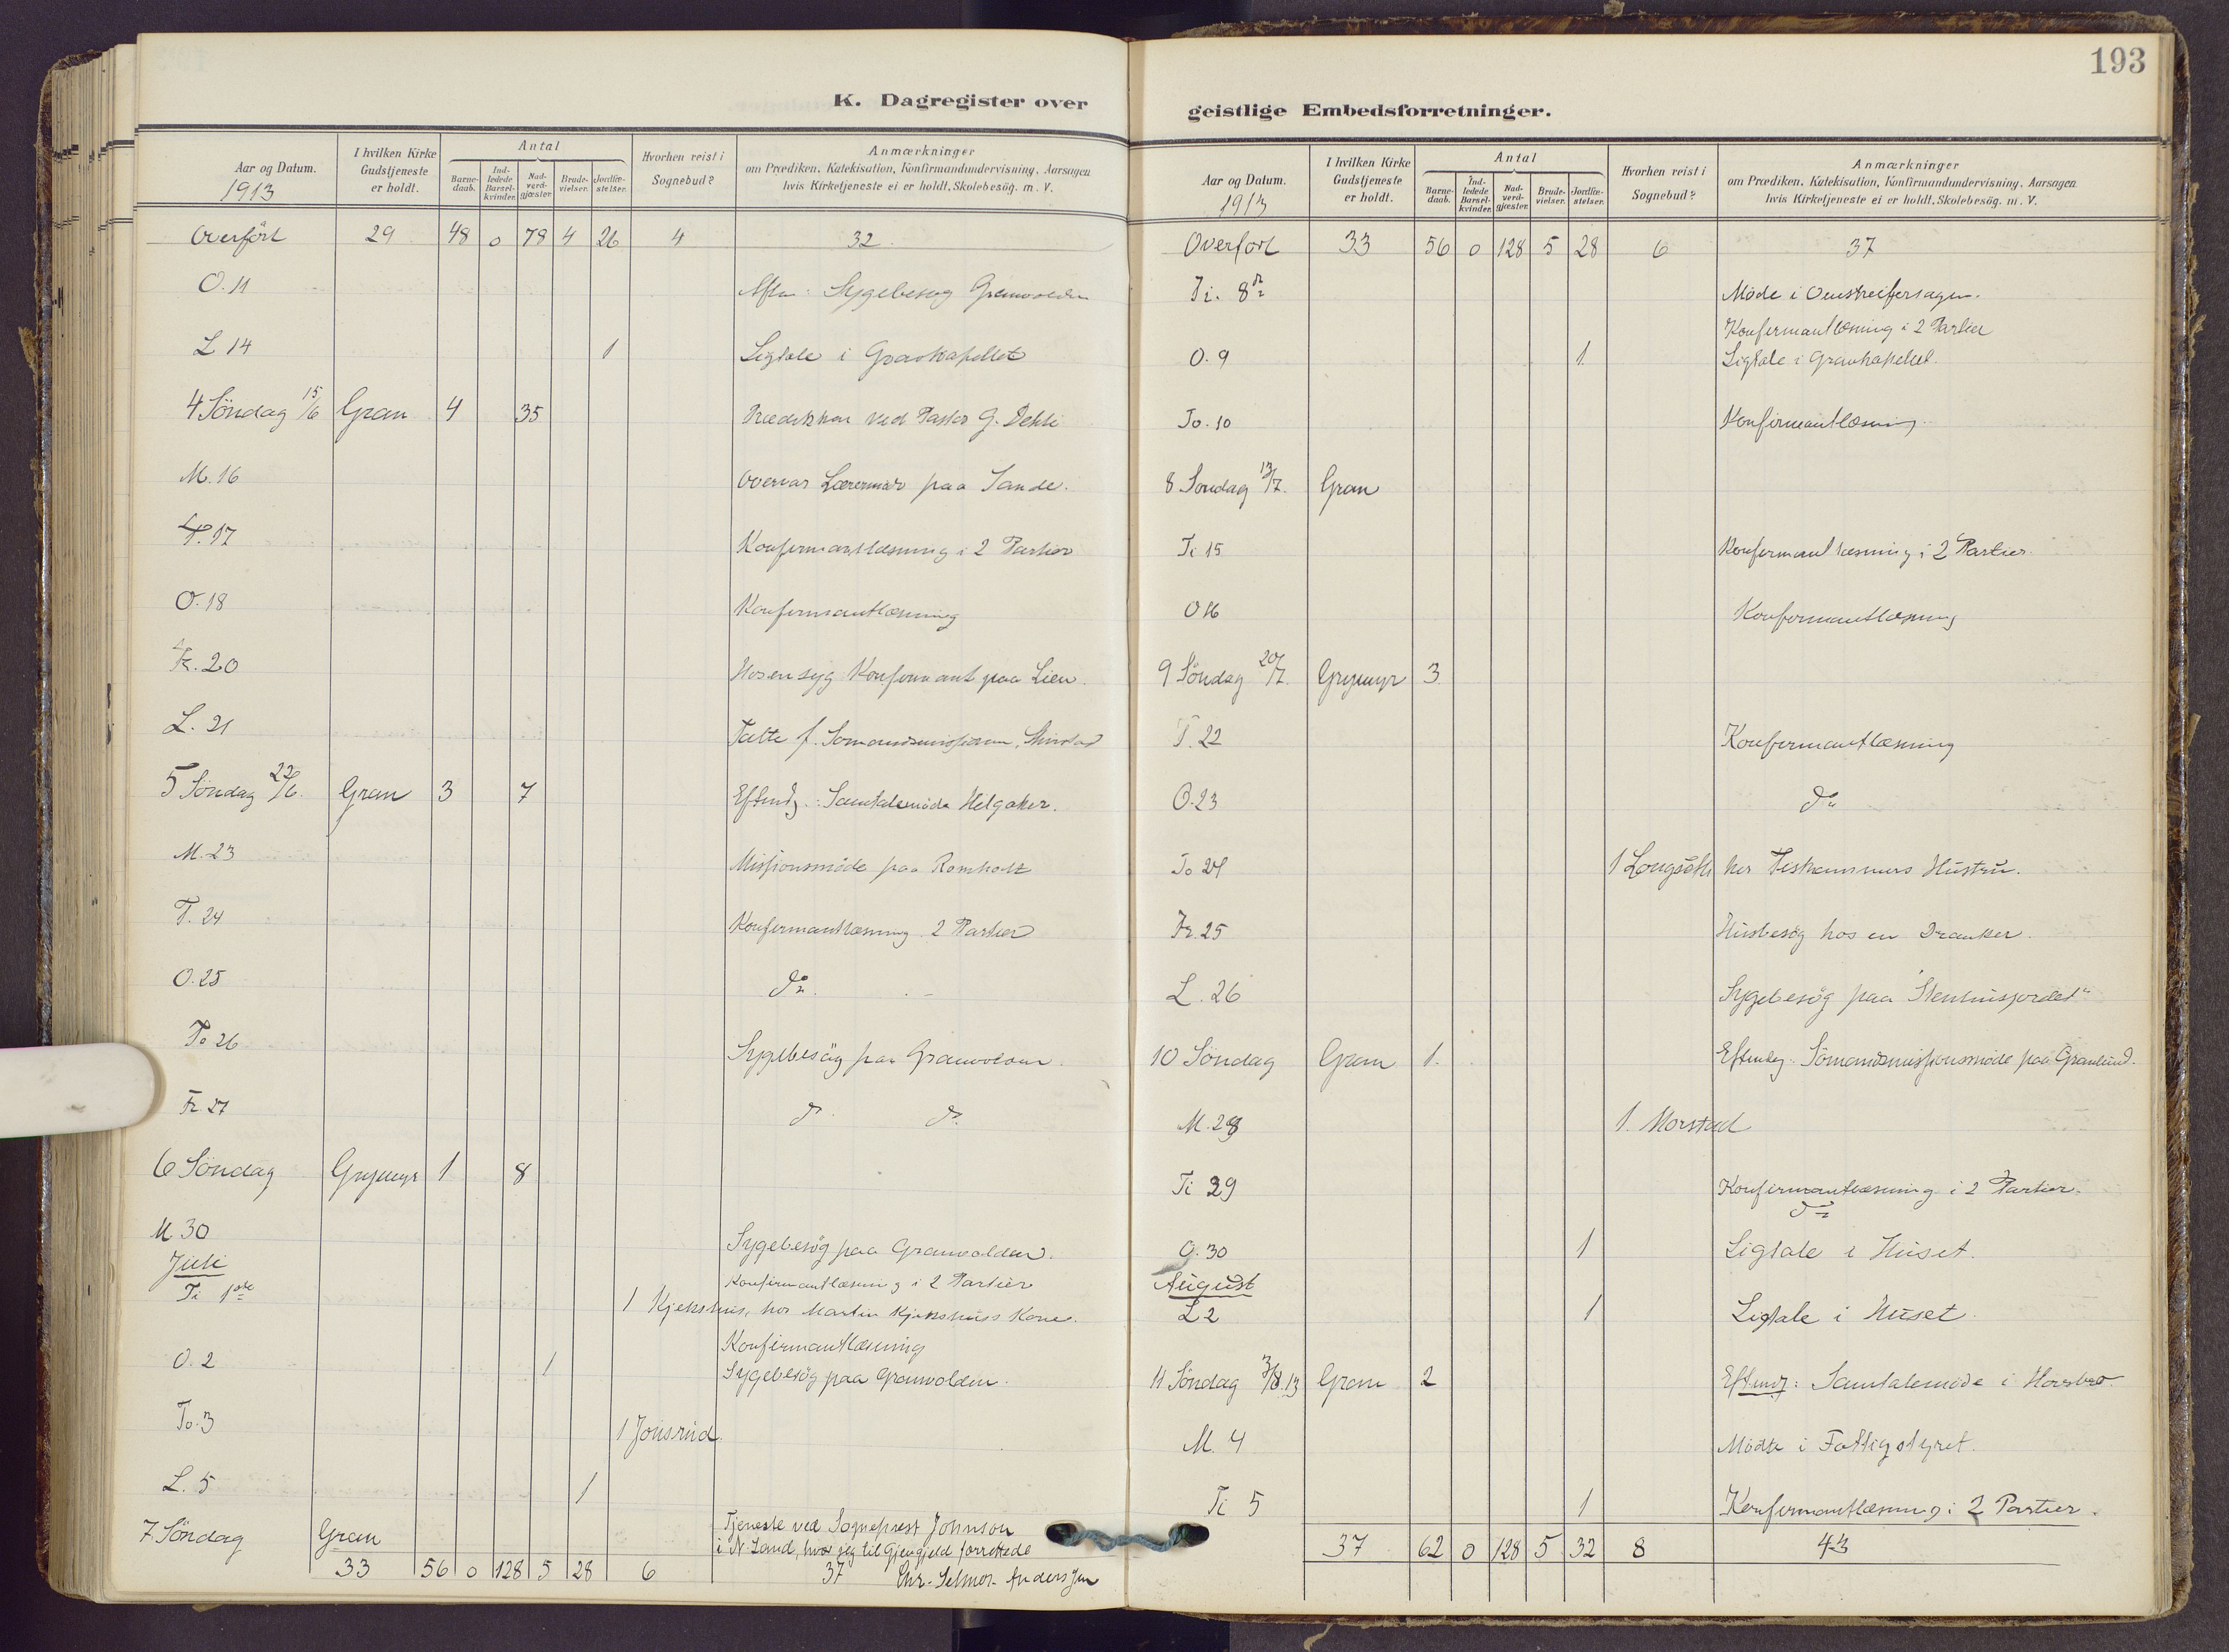 193
K. Dagregister over
Aar og Datum.
1913
I hvilken Kirke Gudstjeneste er holdt.
Antal
Barne-daab.
Ind-ledede Barsel-kvinder.
Nad-verd-gjæster.
Brude-vielser.
Jordfæ-stelser.
Hvorhen reist i Sognebud?
Anmærkninger
om Prædiken, Katekisation, Konfirmandundervisning, Aarsagen
hvis Kirketjeneste ei er holdt, Skolebesög. m. V.
Overført 29 48 0 78 4 26 4 32
O. 11 Sygebesøg Granvolden
L 14 1 Ligtale i Gravkapellet
4 Söndag 15/6 Gran 4 35 Prædiken ved Pastor G. Dehli
M. 16 Overvar Lærermøde paa Sande.
T. 17 Konfirmantlæsning i 2 Partier
O. 18 Konfirmantlæsning
Fr. 20 Hos en syg Konfirmant paa Lien.
L. 21
5 Söndag 22/6. Gran 3 7 Eftmdg.: Samtalemöde Helgaker.
M. 23 Missionsmöde paa
T. 24 Konfirmantlæsning 2 Partier
O. 25 do.
To 26 Sygebesög paa Granvolden.
Fr. 27 do. do.
6 Söndag Grymyr 1 8
M. 30 Sygebesög paa Granvolden.
Juli
Ti 1ste Konfirmantlæsning i 2 Partier
1 Kjekshus, hos Martin Kjekshus's Kone.
Konfirmantlæsning
O. 2 1 Sygebesög paa Granvolden.
To. 3 1 Jonsrud.
L. 5 1
7. Söndag Gran Tjeneste ved Sogneprest Johnson
i N. Land, hvor jeg til Gjengjeld forrettede
33 56 0 128 5 28 6 37 Chr. Selmer-Anderssen
geistlige Embedsforretninger.
Aar og Datum.
1913
I hvilken Kirke Gudstjeneste er holdt.
Antal
Barne-daab.
Ind-ledede Barsel-kvinder.
Nad-verd-gjæster.
Brude-vielser.
Jordfæ-stelser.
Hvorhen reist i Sognebud?
Anmærkninger
om Prædiken, Katekisation, Konfirmandundervisning, Aarsagen
hvis Kirketjeneste ei er holdt, Skolebesög. m. V.
Overfört 33 56 0 128 5 28 6 37
Ti. 8de Möde i Omstreifersagen.
Konfirmantlæsning i 2 Partier
O. 9 1 Ligtale i Gravkapellet.
To. 10 Konfirmantlæsning.
8 Söndag 13/7. Gran
Ti 15 Konfirmantlæsning i 2 Partier.
O 16 Konfirmantlæsning
9 Söndag 20/7. Grymyr 3
T. 22 Konfirmantlæsning
O. 23 do
To 24 1 hos Hustru.
Fr. 25 Husbesög hos en Dranker.
L. 26 Sygebesög paa "Stenhusjordet"
10 Söndag Gran 1. Eftmdg. Sömandsmissionsmöde paa Granlund.
M. 28 1. Morstad
Ti 29 Konfirmantlæsning i 2 Partier.
do
O. 30 1 Ligtale i Huset.
August
L 2 1 Ligtale i Huset
11 Söndag 3/8.13 Gran 2 Eftmdg: Samtalemöde i
M. 4 Mödte i Fattigstyret.
Ti 5 1 Konfirmantlæsning i 2 Partier.
37 62 0 128 5 32 8 43